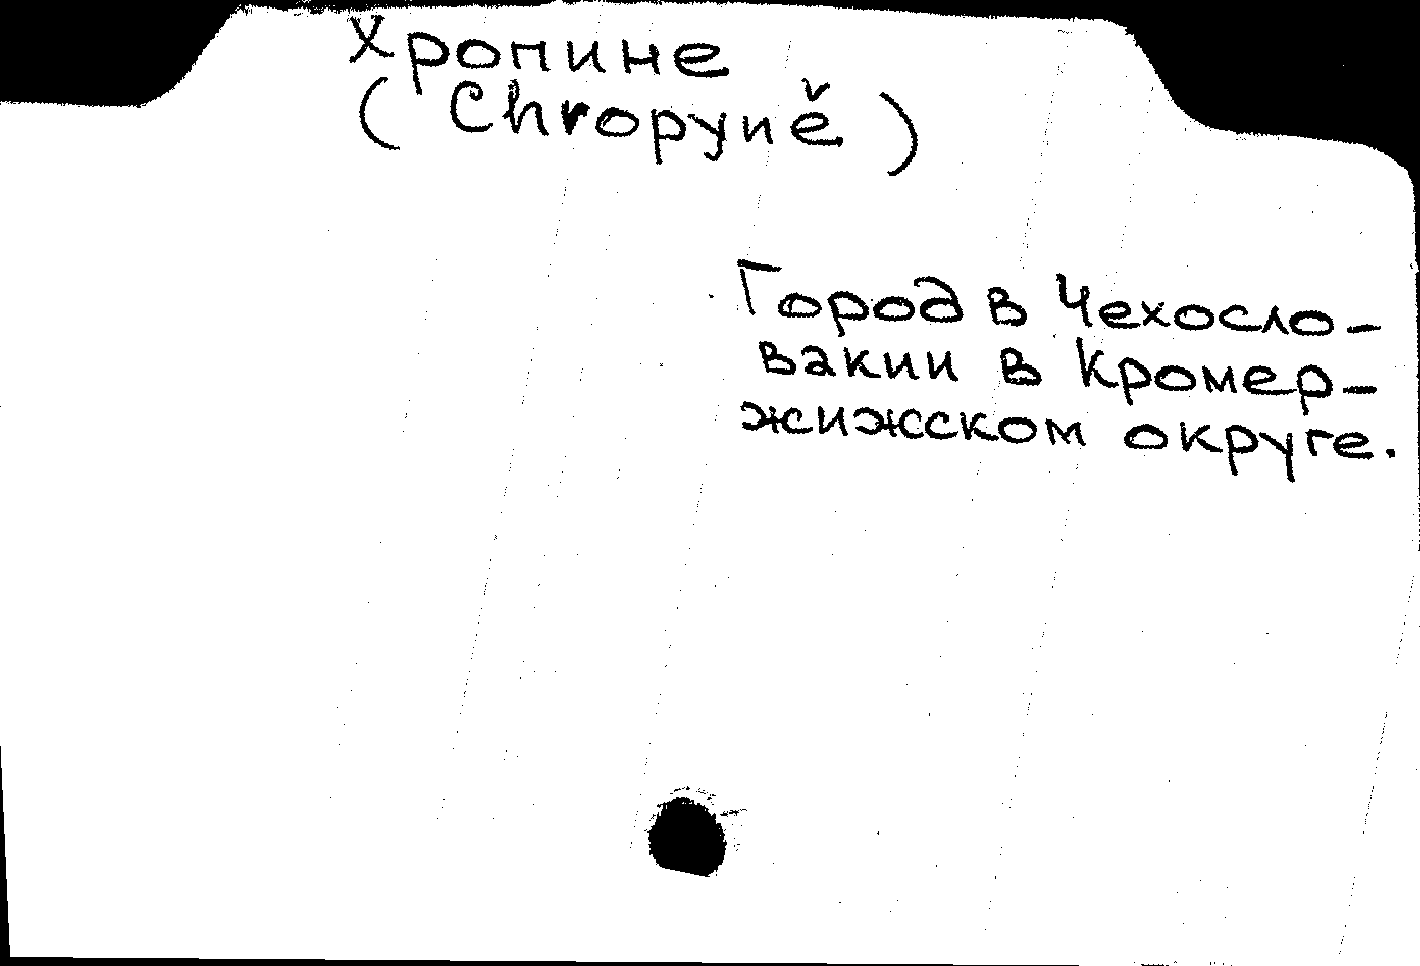 Хропине
(Chropyně)
Город в Чехосло-
вакии в Кромер-
жижском округе.